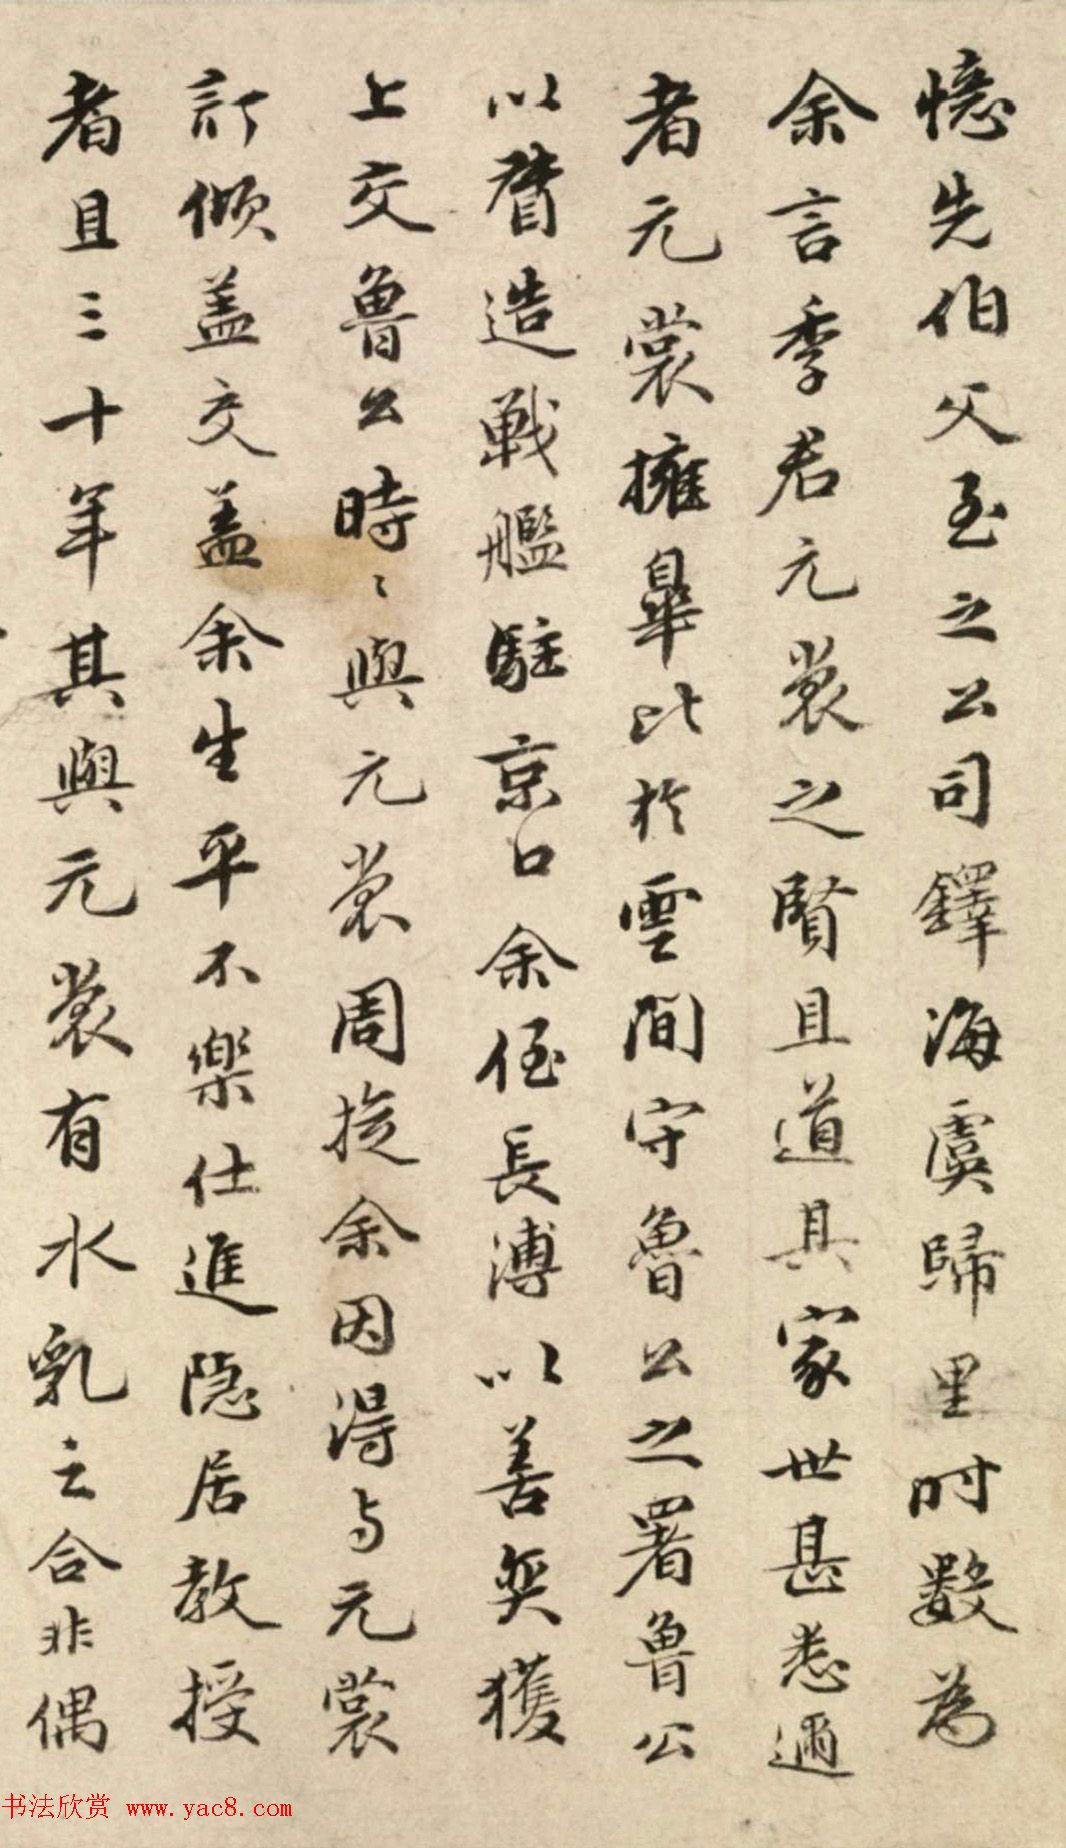 憶先伯父至之公司鐸海虞歸里时數為
余言季君元裳之賢且道其家世甚悉邇
者元裳擁臯比於雲間守魯公之署魯公
以督造戰艦駐京口余侄長溥以善奕獲
上交魯公時〻與元裳周旋余因得与元裳
訂傾盖交盖余生平不樂仕進隐居教授
者且三十年其與元裳有水乳之合非偶
书法欣赏 www.yac8.com